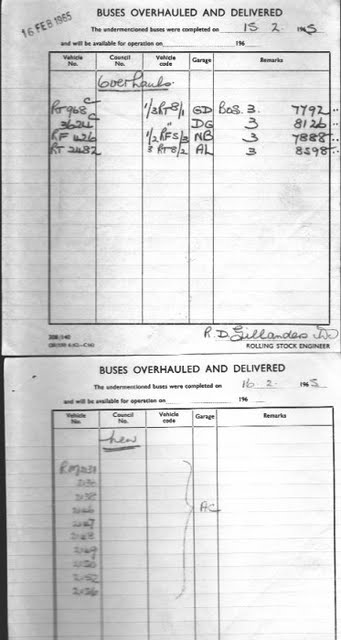 16 FEB 1965
BUSES OVERHAULED AND DELIVERED
The undermentioned buses were completed on 15. 2. 1965
and will be available for operation on 196
Vehicle No. Council No. Vehicle code Garage Remarks
Overhauls.
RT 968 C 1/3RT8/1 GD BOS. 3. 7792
3624 C " DG 3 8126
RF 426 1/2 RF5/3 NB 3 7888
RT 2482 3 RT8/2 AL 3 8598
R.D. Gillanders
ROLLING STOCK ENGINEER
BUSES OVERHAULED AND DELIVERED
The undermentioned buses were completed on 16 2. 1965
and will be available for operation on 196
Vehicle No. Council No. Vehicle code Garage Remarks
new
2138
2146 AC
2147
2148
2149
2150
2152